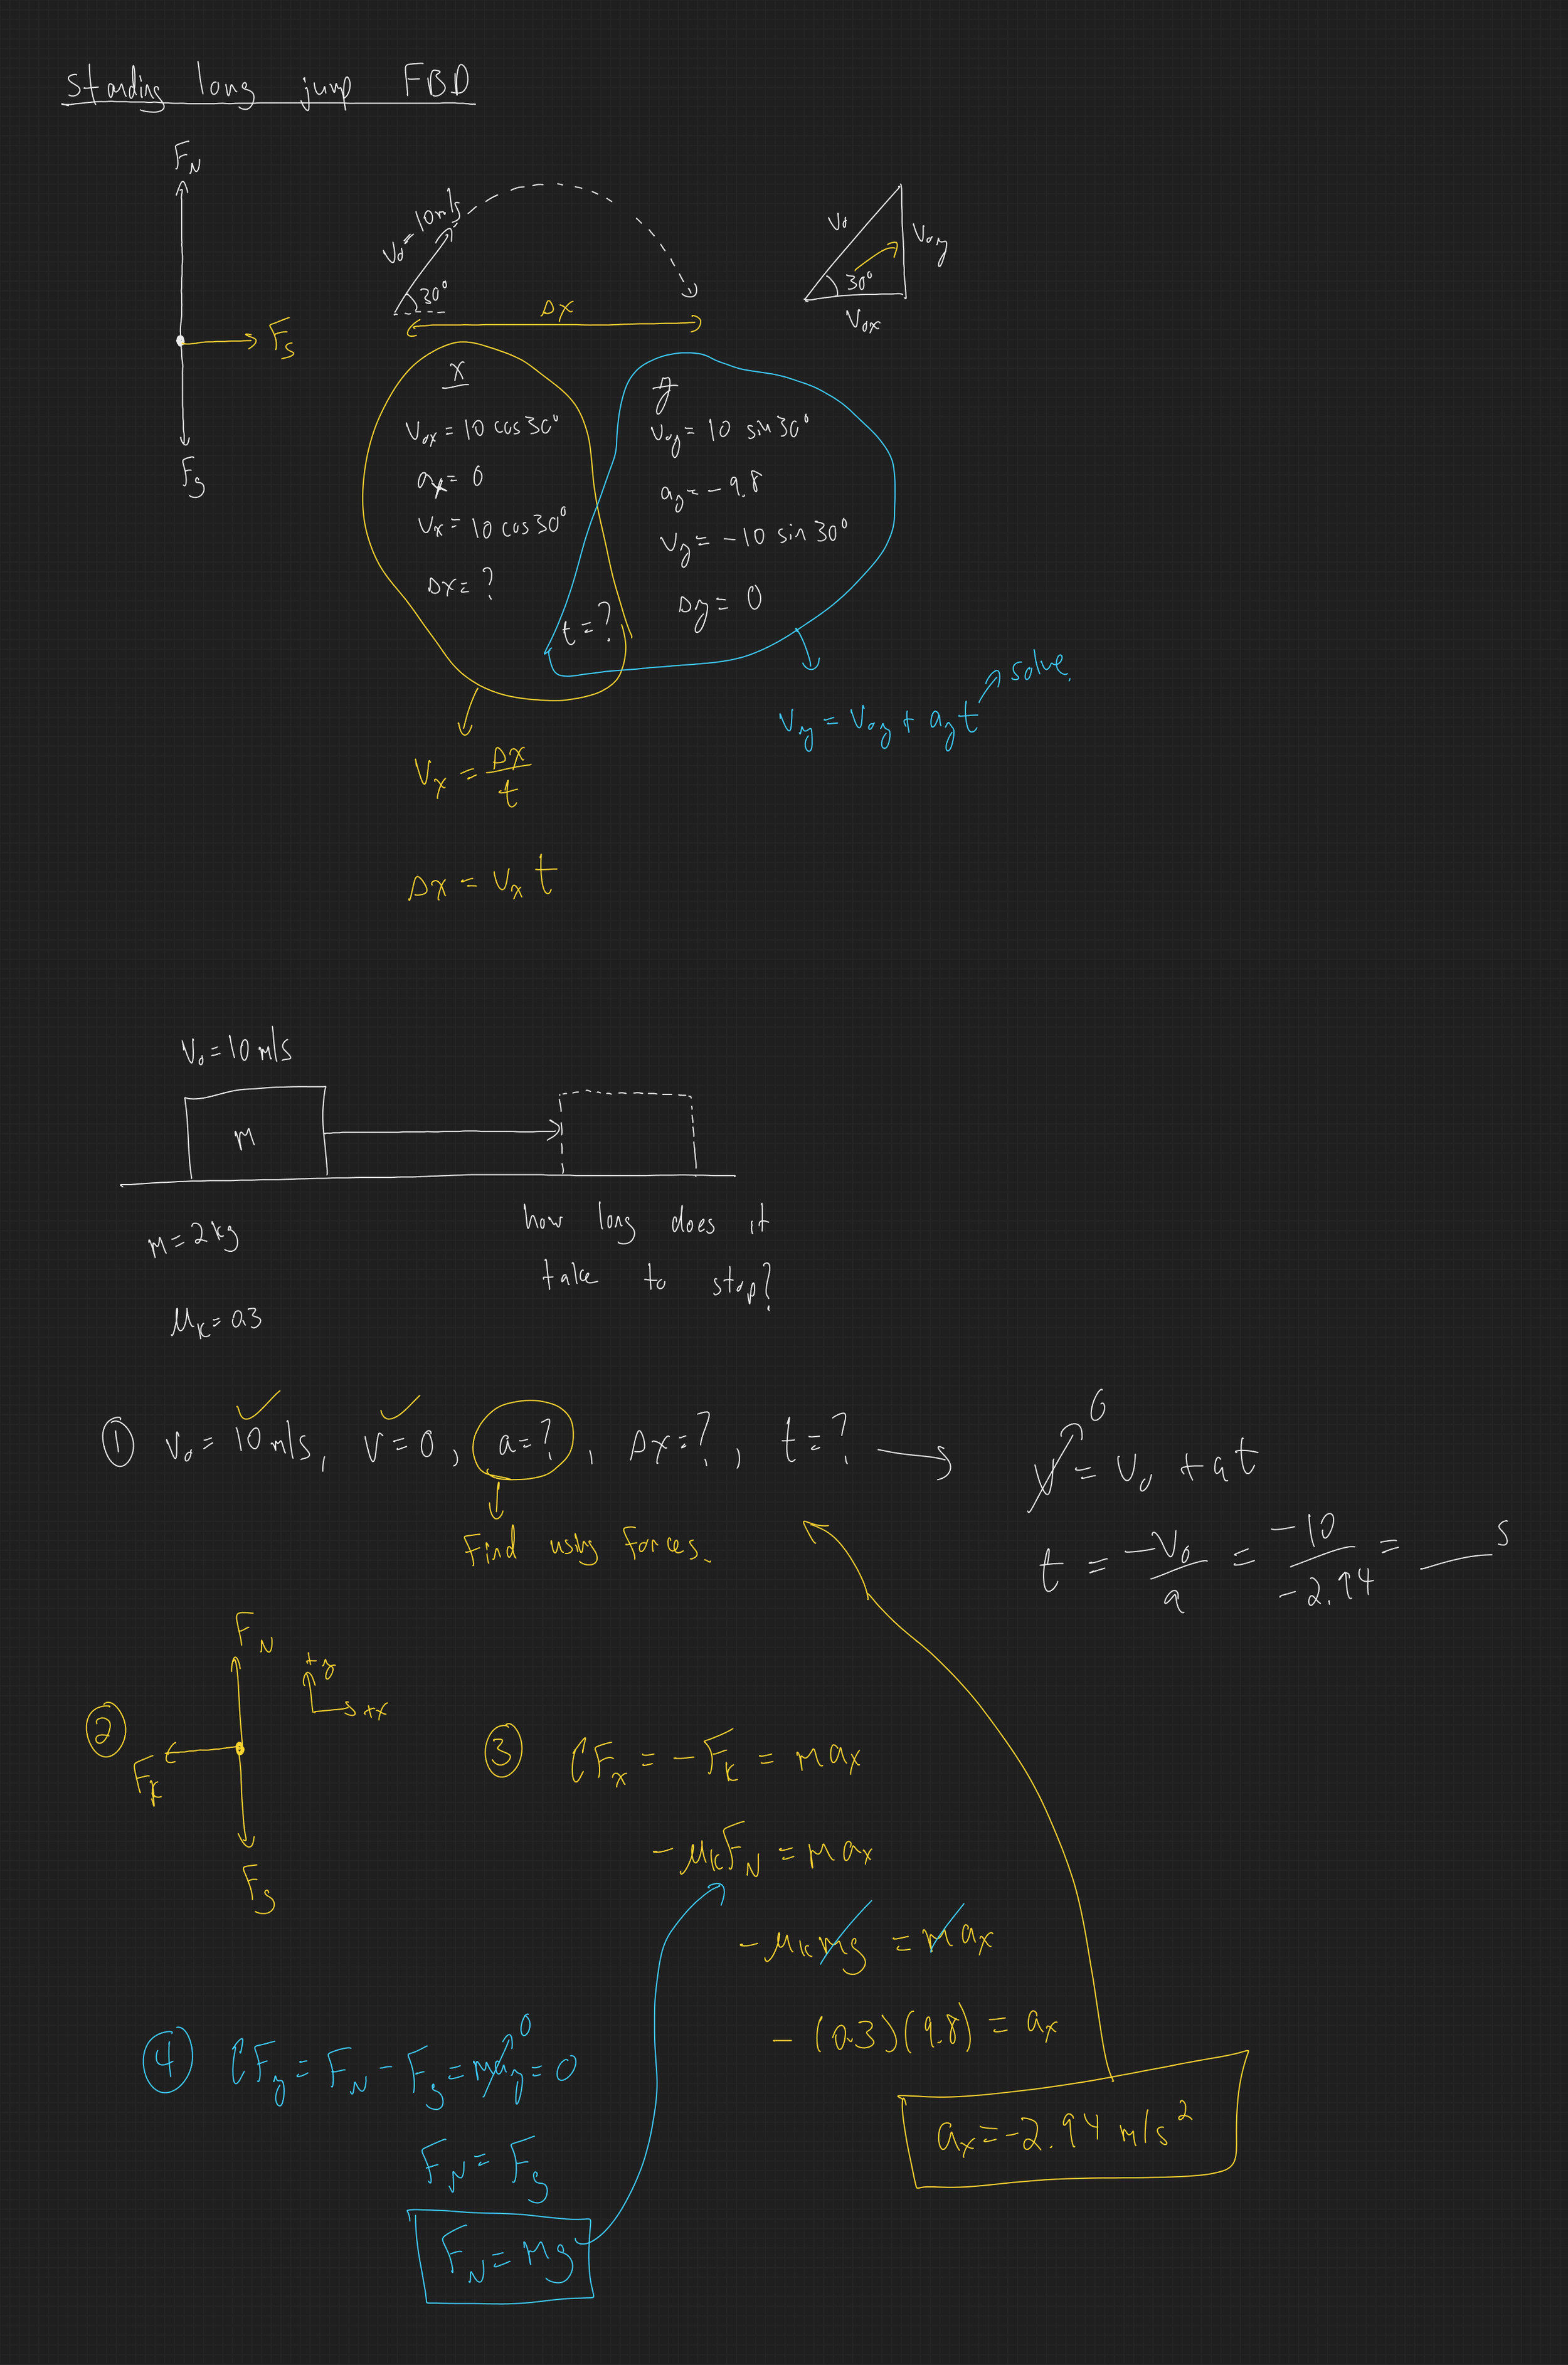 standing long jump FBD
F_N
F_s
F_g
V₀ = 10 m/s
30°
Δx
V₀
V₀y
30°
V₀x
x
V₀x = 10 cos 30°
ax = 0
Vx = 10 cos 30°
Δx = ?
t = ?
y
V₀y = 10 sin 30°
ay = -9.8
Vy = -10 sin 30°
Δy = 0
Vx = Δx/t
Δx = Vx t
Vy = V₀y + ay t
solve.
V₀ = 10 m/s
m
m = 2 kg
μk = 0.3
how long does it
take to stop?
① V₀ = 10 m/s, V = 0, a = ?, Δx = ?, t = ?
Find using forces.
0
V = V₀ + at
t = -V₀/a = -10/-2.94 = ___ s
②
F_N
F_k
F_g
+y
+x
③ ΣFx = -Fk = max
-μkF_N = max
-μkmg = max
-(0.3)(9.8) = ax
ax = -2.94 m/s²
④ ΣFy = F_N - F_g = may = 0
0
F_N = F_g
F_N = mg